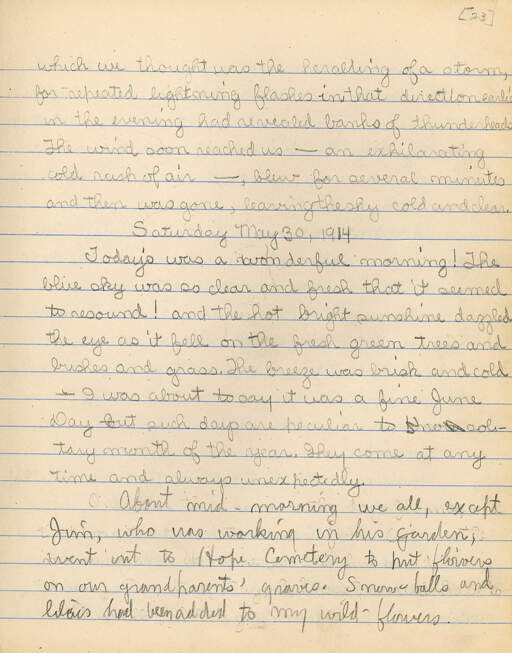 [23]
which we thought was the heralding of a storm,
for repeated lightning flashes in that direction earlier
in the evening had revealed banks of thunderheads.
The wind soon reached us — an exhilarating
cold rush of air —, blew for several minutes
and then was gone, leaving the sky cold and clear.
Saturday May 30, 1914
Today's was a wonderful morning! The
blue sky was so clear and fresh that it seemed
to resound! and the hot bright sunshine dazzled
the eye as it fell on the fresh green trees and
bushes and grass. The breeze was brisk and cold
— I was about to say it was a fine June
Day but such days are peculiar to no soli-
tary month of the year. They come at any
time and always unexpectedly.
About mid-morning we all, except
Jim, who was working in his garden,
went out to Hope Cemetery to put flowers
on our grandparents' graves. Snow-balls and
lilacs had been added to my wild-flowers.